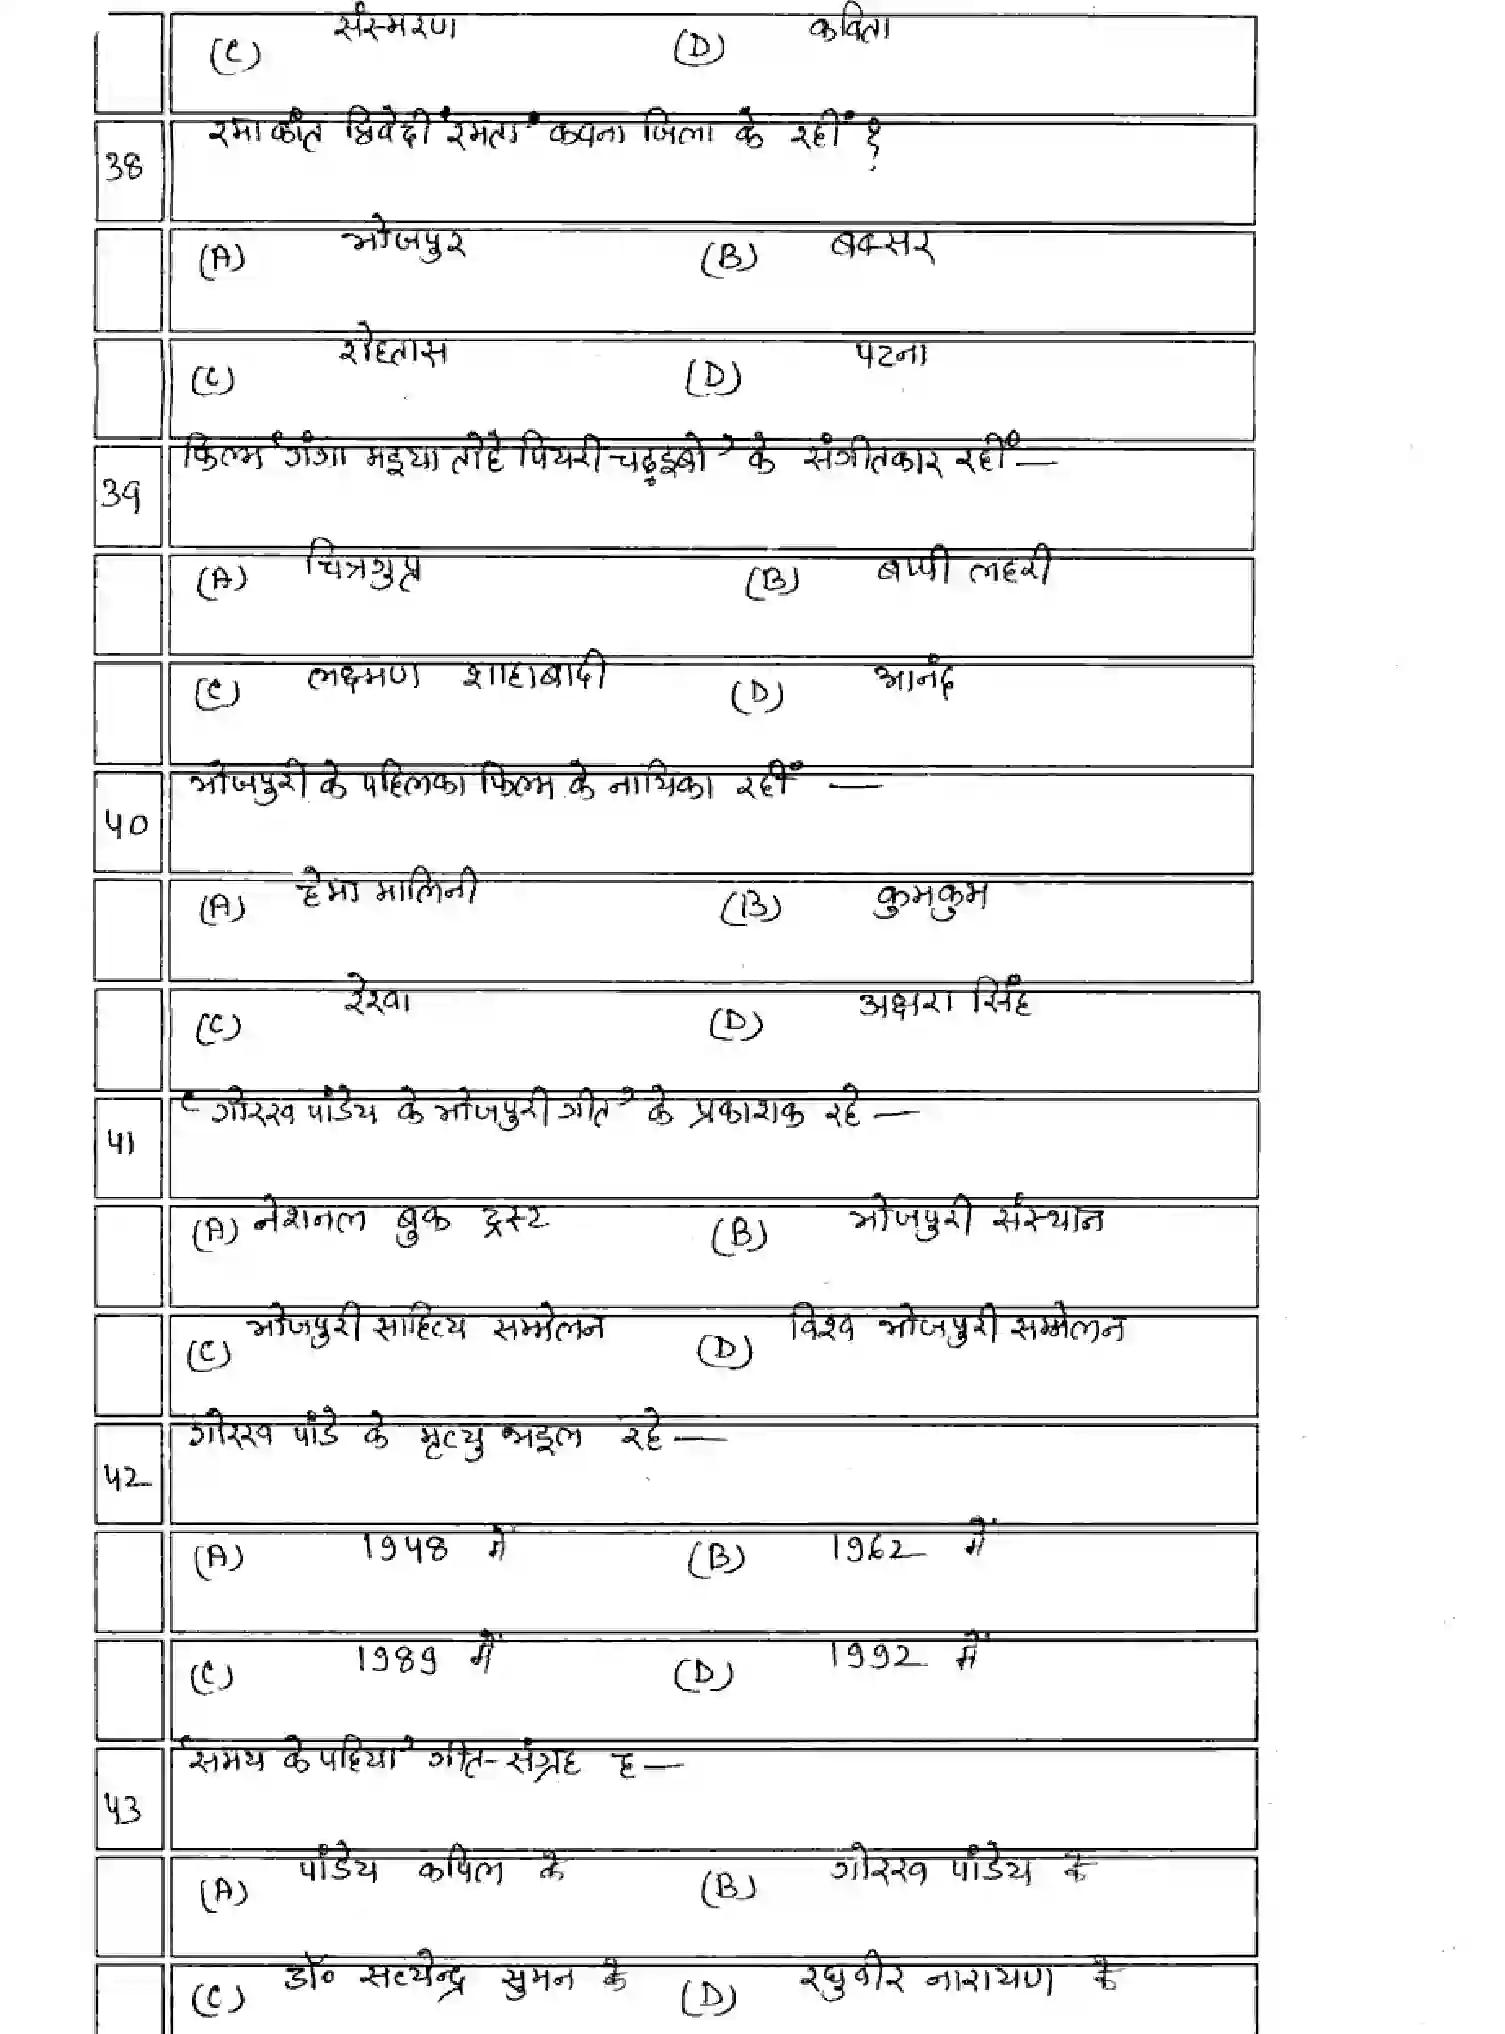 (C) संस्मरण (D) कविता
38 रमाकांत द्विवेदी 'रमता' कवना जिला के रहीं ?
(A) भोजपुर (B) बक्सर
(C) रोहतास (D) पटना
39 फिल्म 'गंगा मइया तोहे पियरी चढ़इबो' के संगीतकार रहीं —
(A) चित्रगुप्त (B) बप्पी लहरी
(C) लक्ष्मण शाहाबादी (D) आनंद
40 भोजपुरी के पहिलका फिल्म के नायिका रहीं —
(A) हेमा मालिनी (B) कुमकुम
(C) रेखा (D) अक्षरा सिंह
41 'गोरख पांडेय के भोजपुरी गीत' के प्रकाशक रहे —
(A) नेशनल बुक ट्रस्ट (B) भोजपुरी संस्थान
(C) भोजपुरी साहित्य सम्मेलन (D) विश्व भोजपुरी सम्मेलन
42 गोरख पांडे के मृत्यु भइल रहे —
(A) 1948 में (B) 1962 में
(C) 1989 में (D) 1992 में
43 'समय के पहिया' गीत-संग्रह ह —
(A) पांडेय कपिल के (B) गोरख पांडेय के
(C) डॉ० सत्येन्द्र सुमन के (D) रघुवीर नारायण के